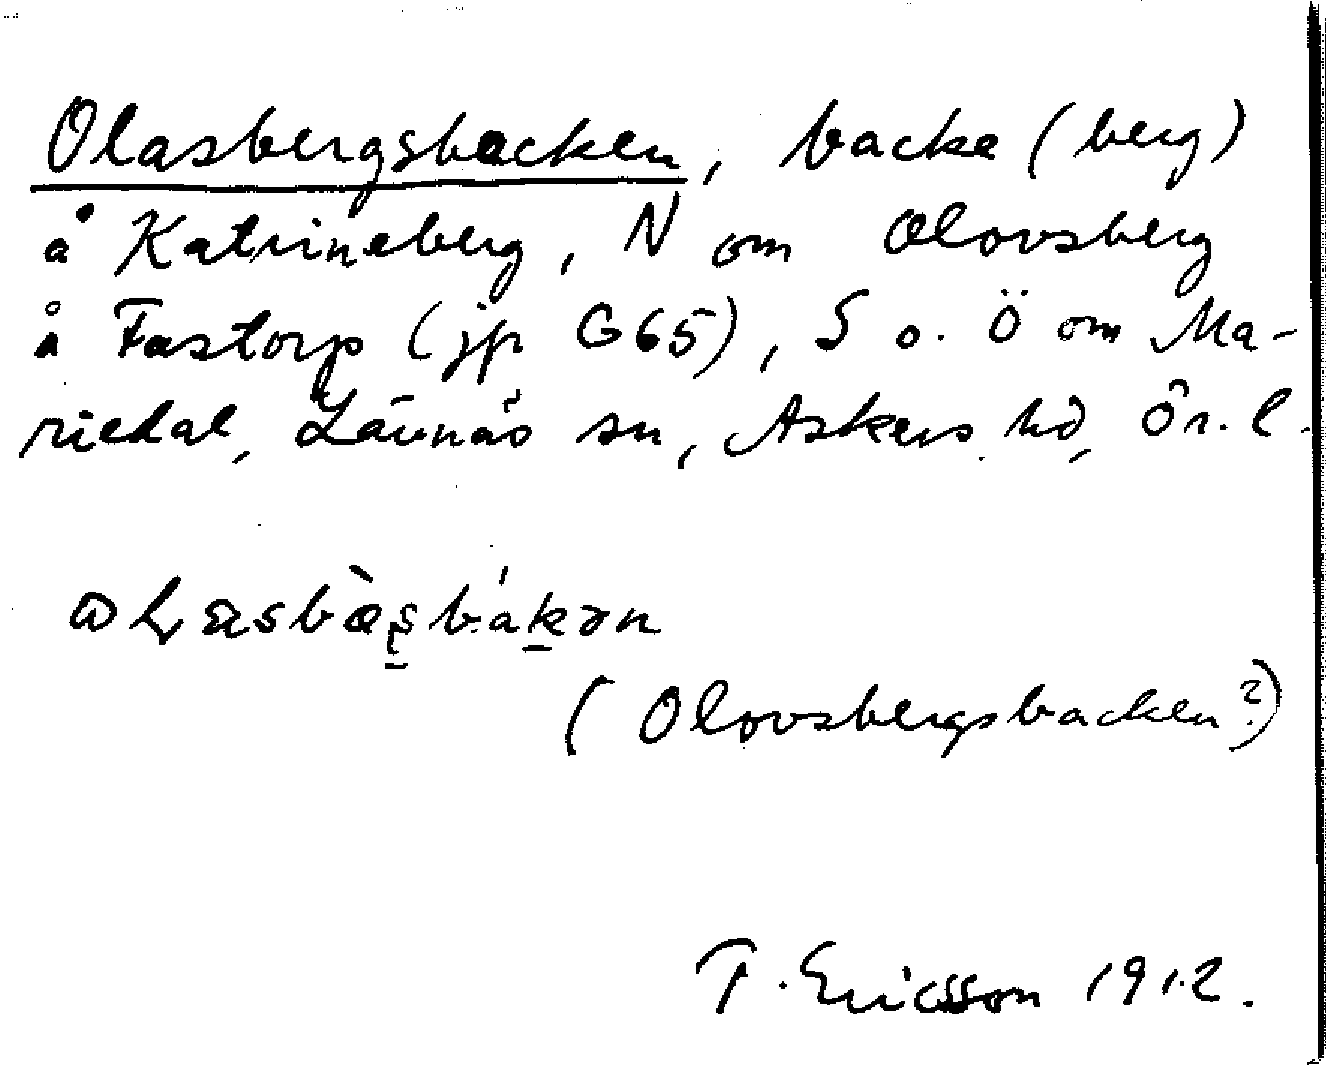 Olasbergsbacken, backe (berg)
å Katrineberg, N om Olovsberg
å Fastorp (jp G65), S o. Ö om Ma-
riedal, Lännäs sn, Askers hd, Ör. l.
(Olovsbergsbacken?)
T. Ericsson 1912.